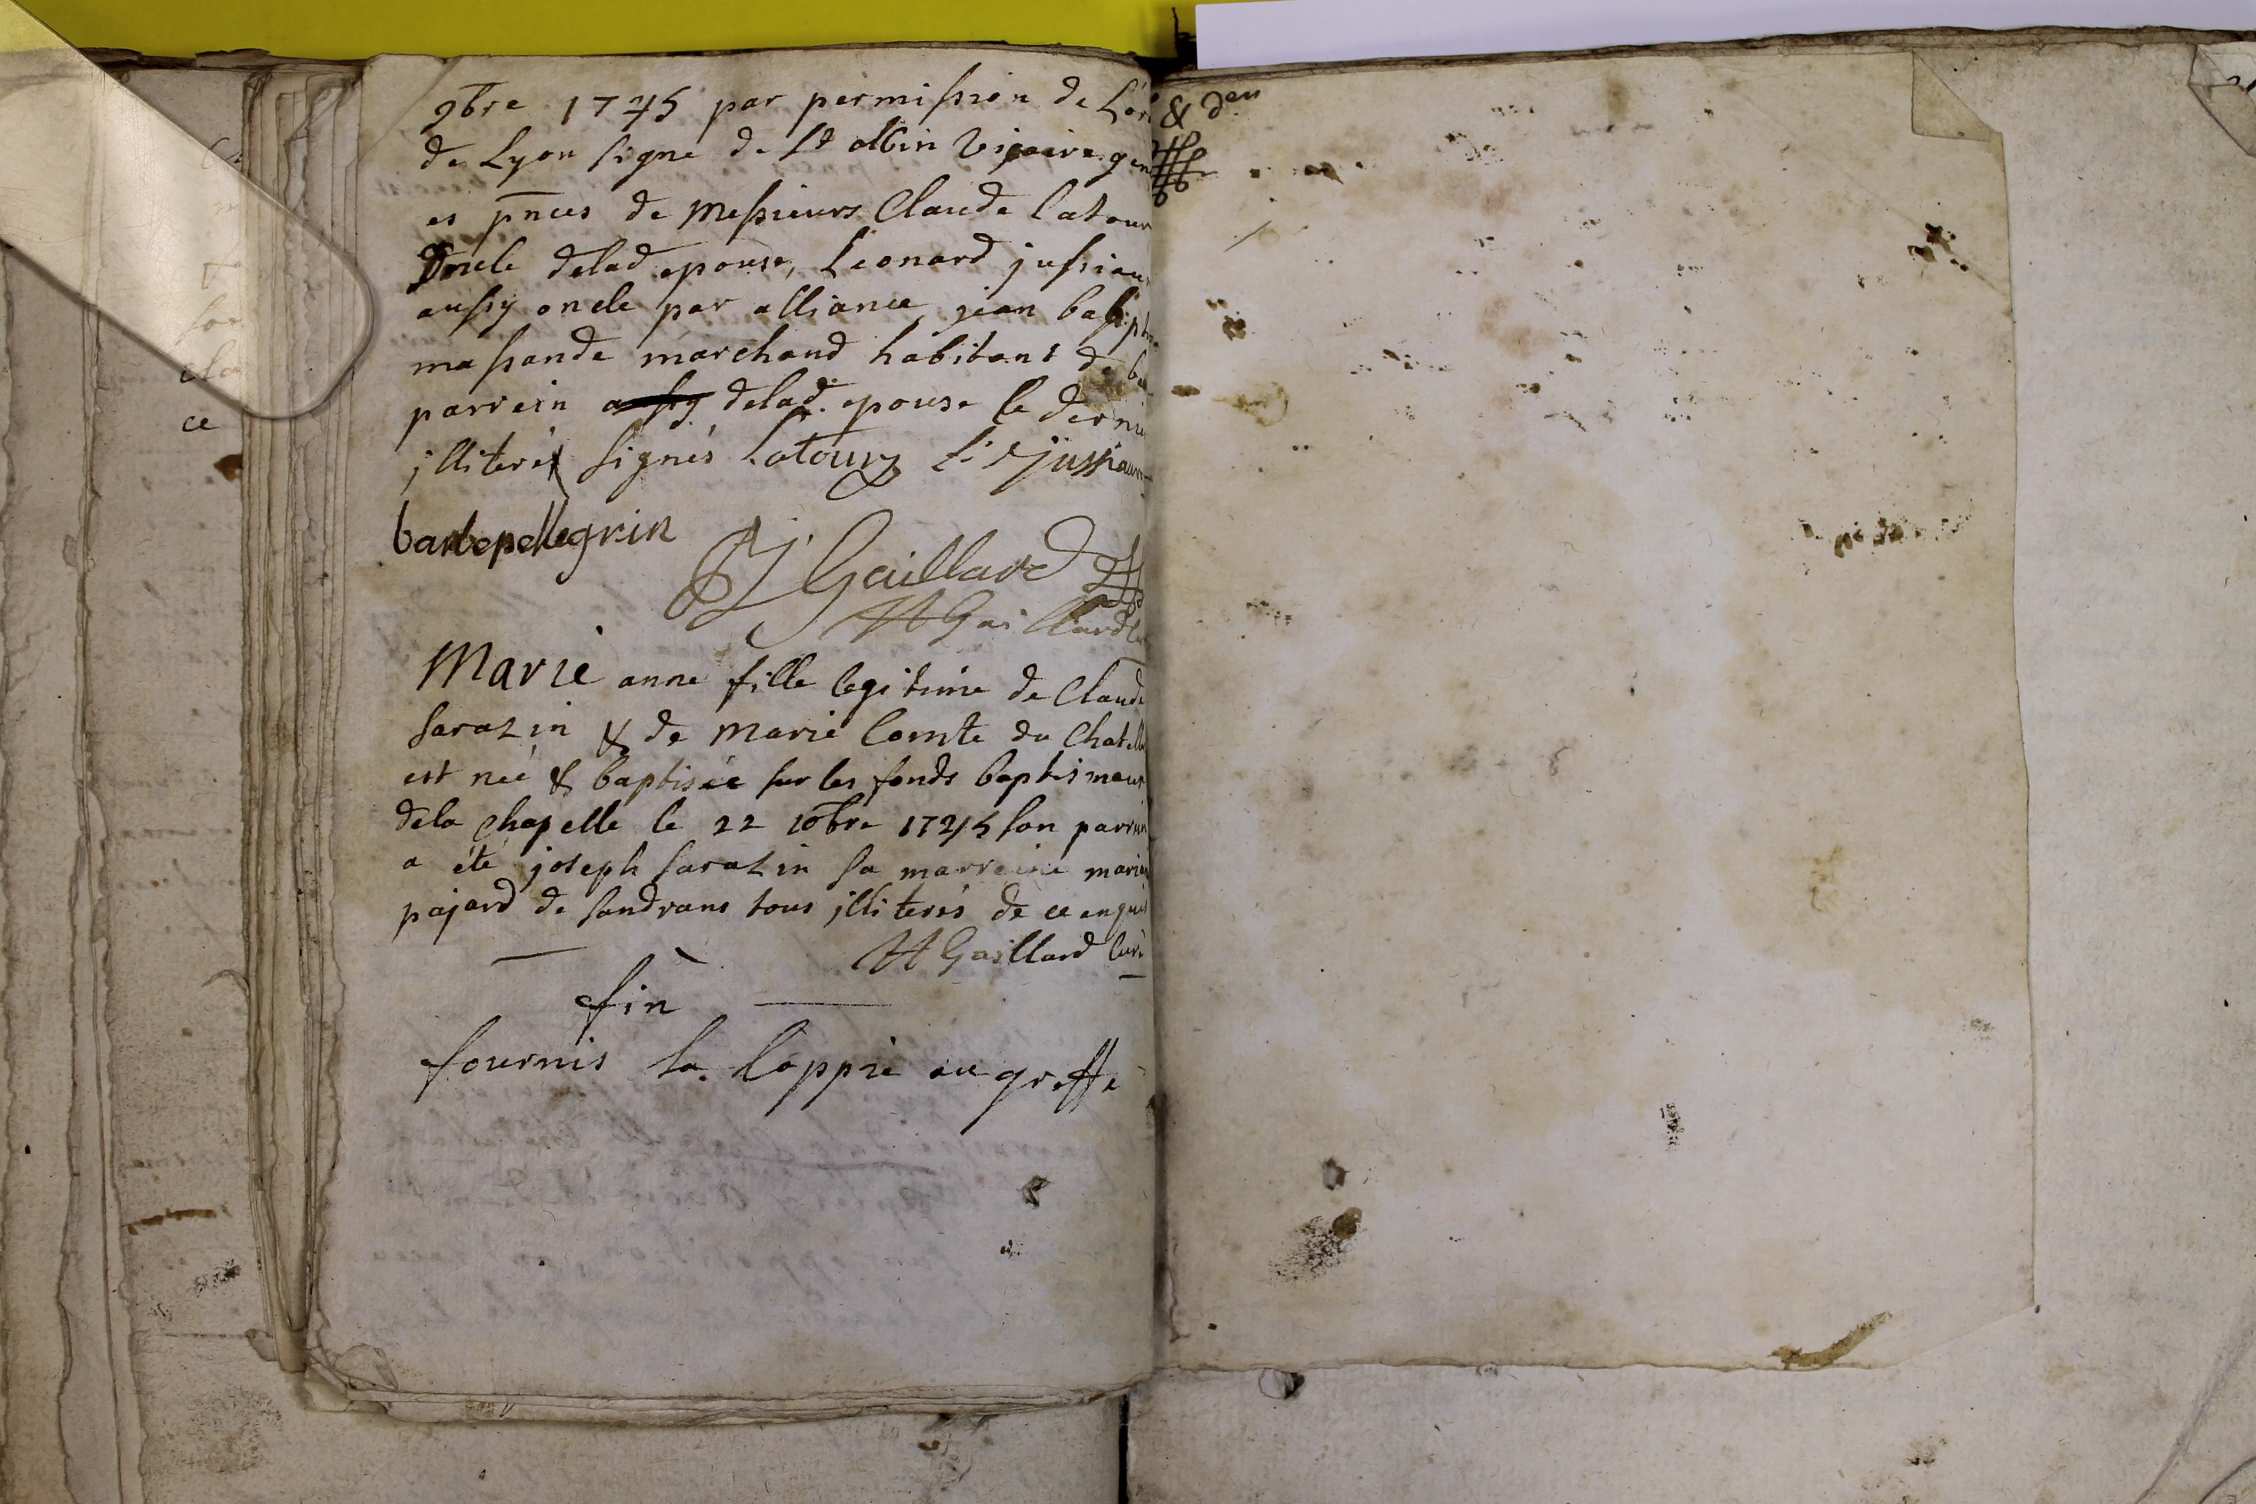 9bre 1745 par permission de
de Lyon signé de St albin vicaire gen
es pnces de Messieurs Claude latour
oncle delad. epouse, Leonard jussiau
aussy oncle par alliance, jean baptiste
massande marchand habitant de
parrein aussy delad. epouse le dernier
jlliteré signés Latour Jussiaur
barbe pellegrin
Gaillard
Gaillard
Marie anne fille legitime de Claude
saratin & de Marie Comte du Chatella
est neé & baptisée sur les fonds baptismaux
dela chapelle le 22 10bre 1745 son parrein
a été joseph saratin sa marreine marie
pajard de sandrans tous jlliterés de ce enquis
Gaillard Curé
fin
fournis la Coppie au greffe
& den
ce